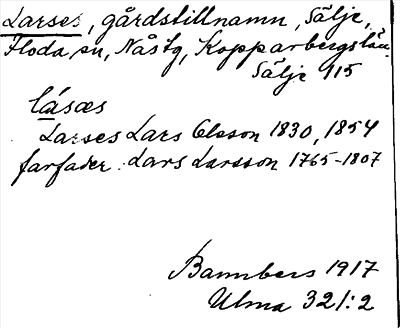 Larses, gårdstillnamn, Sälje,
Floda sn, Nåstg, Kopparbergs län.
Sälje 115
lásæs
Larses Lars Olsson 1830, 1854
farfader: Lars Larsson 1765-1807
Bannbers 1917
Ulma 321:2